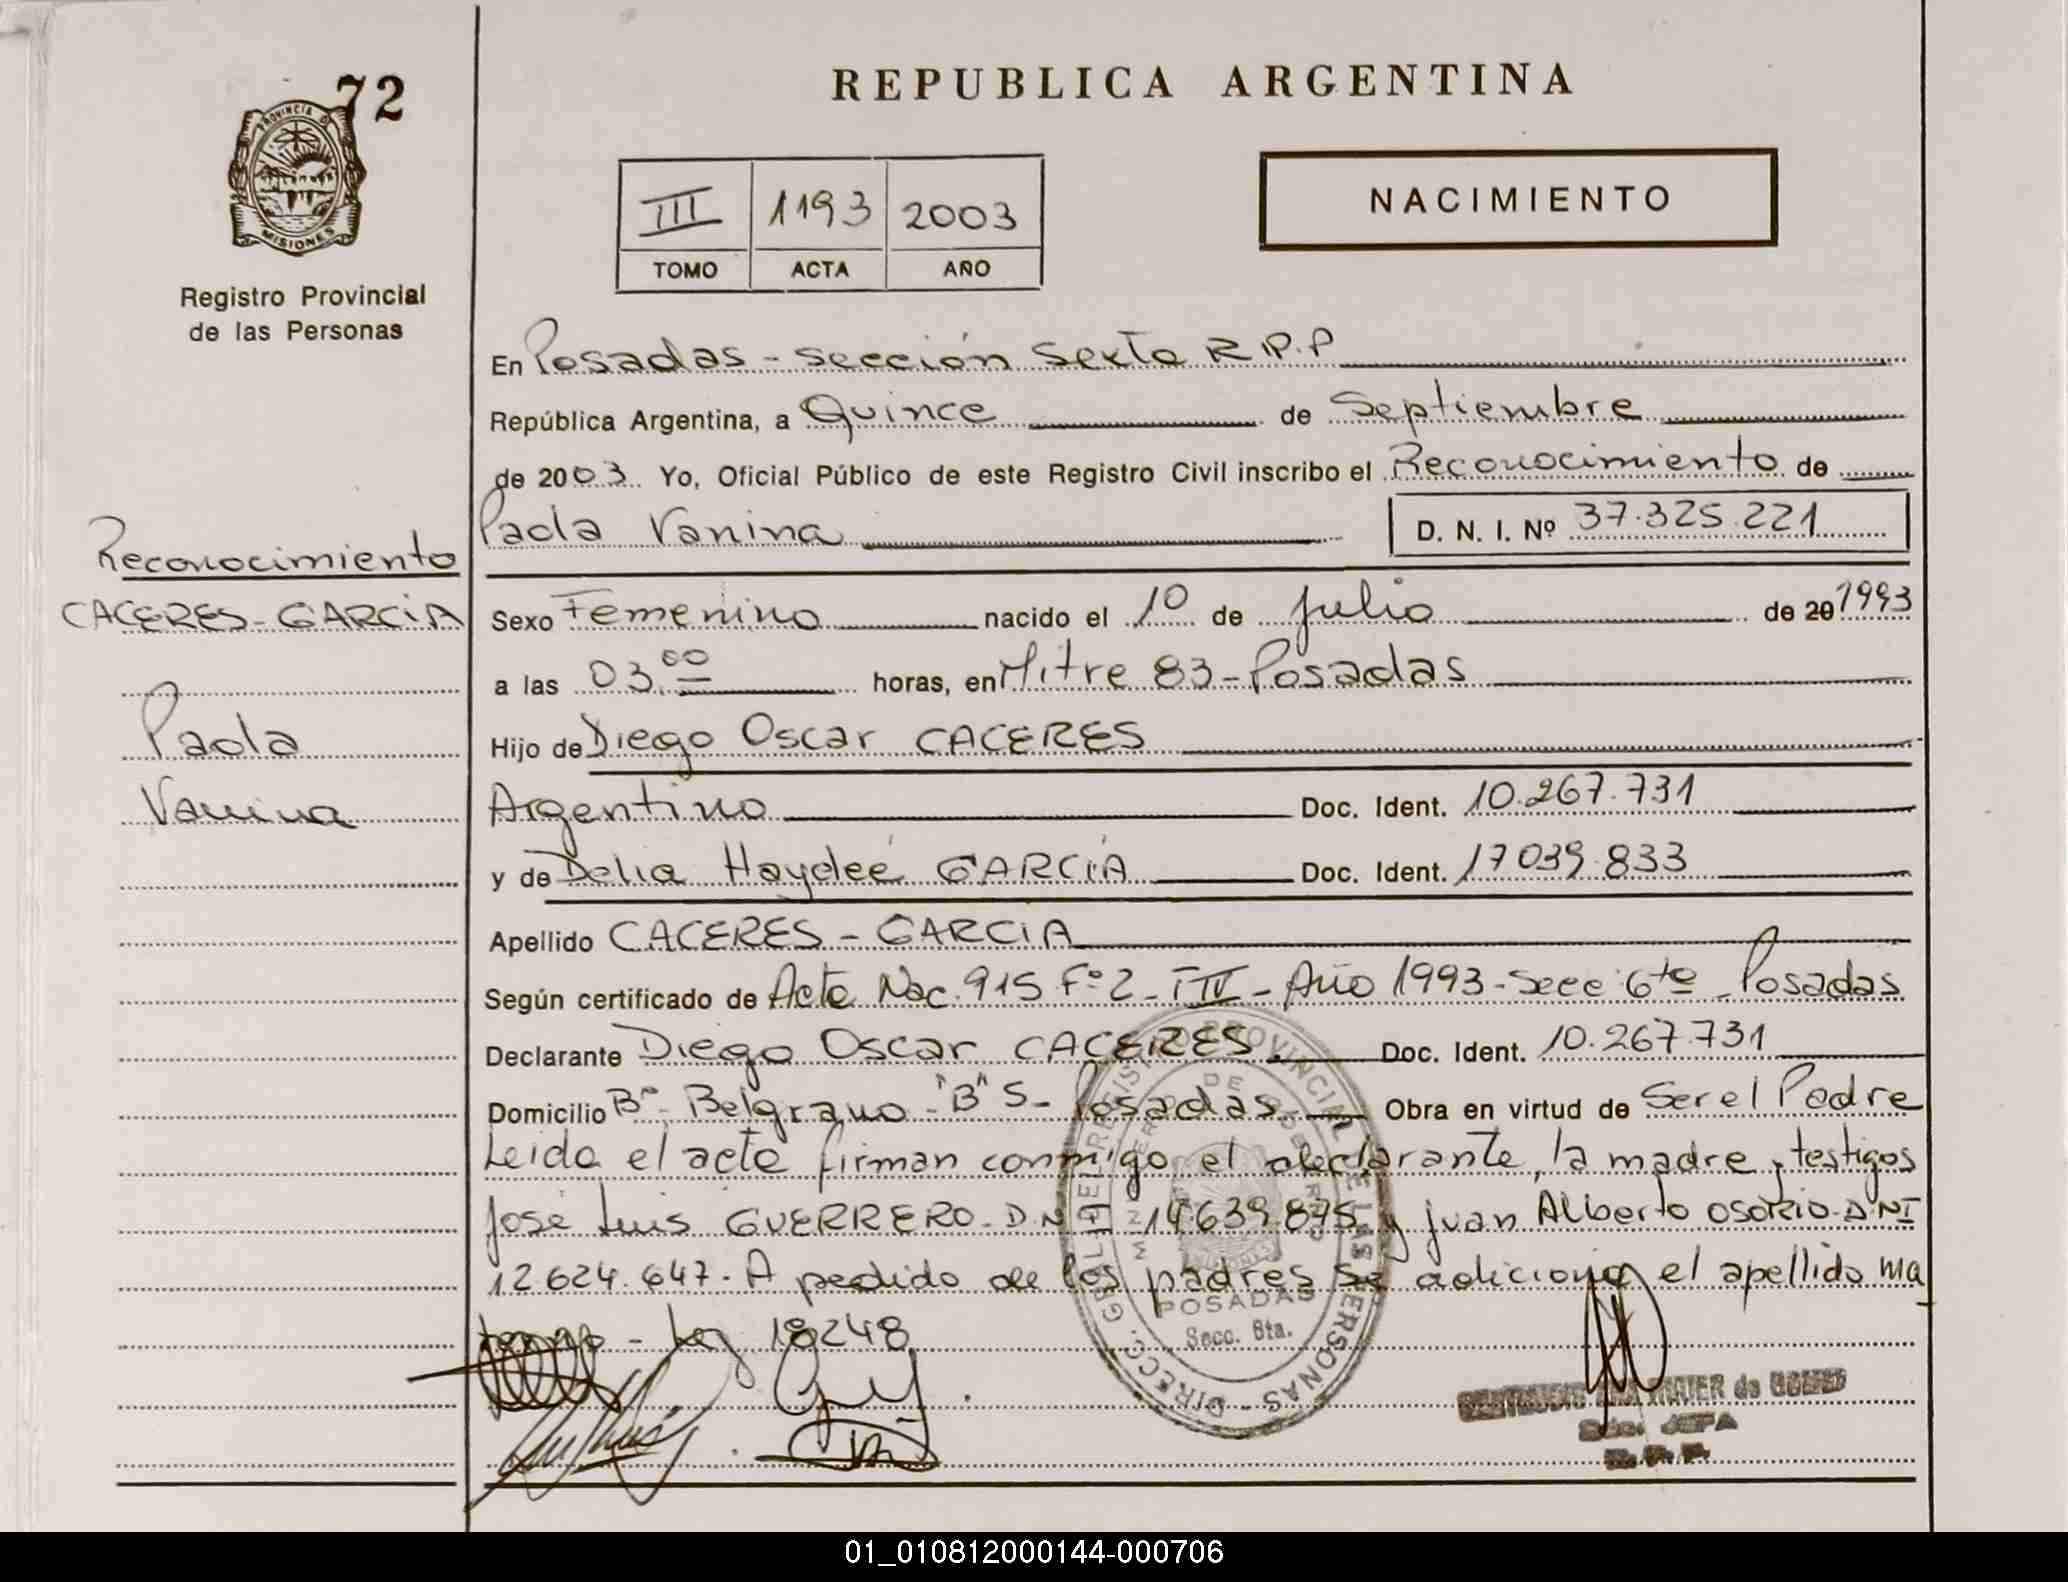 72
PROVINCIA D
MISIONES
Registro Provincial
de las Personas
REPUBLICA ARGENTINA
III 1193 2003
TOMO ACTA AÑO
NACIMIENTO
En Posadas - Sección Sexta R.P.P
República Argentina, a Quince de Septiembre
de 2003. Yo, Oficial Público de este Registro Civil inscribo el Reconocimiento de
Paola Vanina D. N. I. Nº 37.325.221
Reconocimiento
CACERES - GARCIA
Paola
Vanina
Sexo Femenino nacido el 10 de julio de 20 1993
a las 03.00 horas, en Mitre 83 - Posadas
Hijo de Diego Oscar CACERES
Argentino Doc. Ident. 10.267.731
y de Delia Haydeé GARCIA Doc. Ident. 17039.833
Apellido CACERES - GARCIA
Según certificado de Acta Nac. 915 Fº 2 - Año 1993 - Secc 6ta - Posadas
Declarante Diego Oscar CACERES. Doc. Ident. 10.267.731
Domicilio Bº - Belgrano - "B" S - Posadas - Obra en virtud de Ser el Padre
Leida el acta firman conmigo el declarante, la madre, testigos
José Luis GUERRERO - D.N 14.639.875 y juan Alberto OSORIO - DNI
12.624.647. A pedido de los padres se adiciona el apellido ma
terno - Ley 18248
POSADAS
Secc. 6ta.
DIRECC. GRAL. DEL REGISTRO PROVINCIAL DE LAS PERSONAS
de GOMEZ
JEFA
R.P.P.
01_010812000144-000706